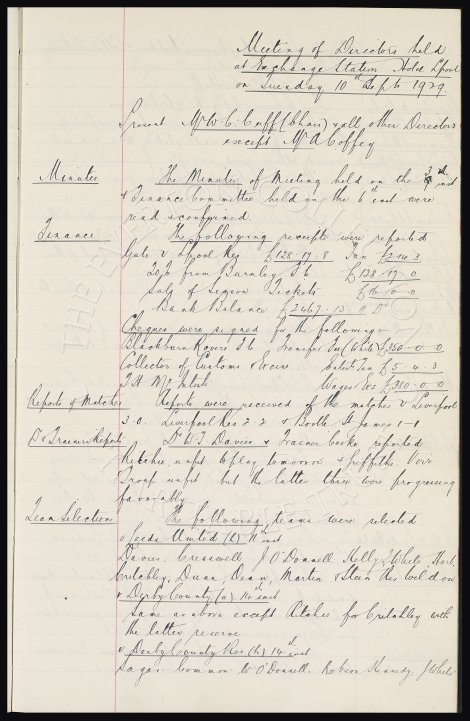 Meeting of Directors held
at Exchange Station Hotel L'pool
on Tuesday 10th Sept 1929.
Present Mr W. C. Cuff (Chair) & all other Directors
except Mr A Coffey
Minutes The Minutes of Meeting held on the 3rd inst
& Finance Committee held on the 6th inst were
read & confirmed.
Finance The following receipts were reported
Gate v L'pool Res £128.19.8 Tax £24.3
20% from Burnley F C £128.19.0
Sale of Season Tickets
Bank Balance £2467.13.11 Dr
Cheques were signed for the following:-
Blackburn Rovers F C Transfer Fee (White) £350-0-0
Collector of Customs & Excise Tax £5.4.3
Wages £350-0-0
Reports of Matches Reports were received of the matches v Liverpool
3-0. Liverpool Res 2-2 & Bootle St James 1-1
Dr & Trainers Report Dr W. J. Davies & Trainer Cooke reported
Ritchie unfit to play tomorrow & Griffiths, Parr
Troup unfit but the latter three were progressing
favorably.
Team Selection The following teams were selected
v Leeds United (h) 11th inst
Davies. Cresswell, J O'Donnell. Kelly, J White Hart,
Critchley, Dunn, Dean, Martin & Stein Res Weldon
v Derby County (a) 14th inst
same as above except Ritchie for Critchley with
the latter reserve
v Derby County Res (h) 14th inst
Sagar. Common W O'Donnell. Robson Kennedy, J White